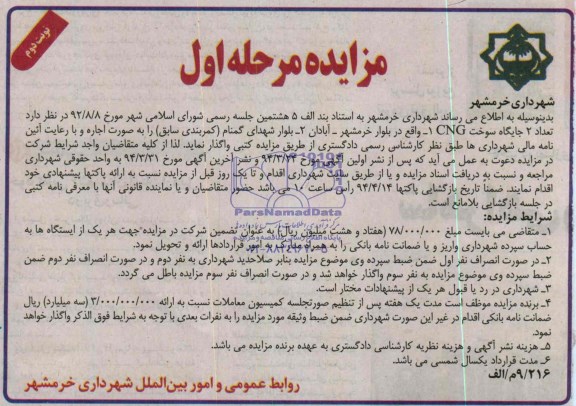 نوبت دوم
مزایده مرحله اول
شهرداری خرمشهر
بدینوسیله به اطلاع می رساند شهرداری خرمشهر به استناد بند الف ۵ هشتمین جلسه رسمی شورای اسلامی شهر مورخ ۹۲/۸/۸ در نظر دارد
تعداد ۲ جایگاه سوخت CNG ۱ـ واقع در بلوار خرمشهر ـ آبادان ۲ـ بلوار شهدای گمنام (کمربندی سابق) را به صورت اجاره و با رعایت آئین
نامه مالی شهرداری ها طبق نظر کارشناسی رسمی دادگستری از طریق مزایده کتبی واگذار نماید. لذا از کلیه متقاضیان واجد شرایط شرکت
در مزایده دعوت به عمل می آید که پس از نشر اولین آگهی مورخ ۹۴/۳/۲۴ و نشر آخرین آگهی مورخ ۹۴/۳/۳۱ به واحد حقوقی شهرداری
مراجعه و نسبت به دریافت اسناد مزایده و یا از طریق سایت شهرداری اقدام و تا یک روز قبل از مزایده نسبت به ارائه پاکتها پیشنهادی خود
اقدام نمایند. ضمناً تاریخ بازگشایی پاکتها ۹۴/۴/۱۴ راس ساعت ۱۰ می باشد حضور متقاضیان و یا نماینده قانونی آنها با معرفی نامه کتبی
در جلسه بازگشایی بلامانع است.
شرایط مزایده:
۱ـ متقاضی می بایست مبلغ ۷۸/۰۰۰/۰۰۰ (هفتاد و هشت میلیون ریال) به عنوان تضمین شرکت در مزایده جهت هر یک از ایستگاه ها به
حساب سپرده شهرداری واریز و یا ضمانت نامه بانکی را به همراه مدارک به امور قراردادها ارائه و تحویل نمود.
۲ـ در صورت انصراف نفر اول ضمن ضبط سپرده وی موضوع مزایده بنابر صلاحدید شهرداری به نفر دوم و در صورت انصراف نفر دوم ضمن
ضبط سپرده وی موضوع مزایده به نفر سوم واگذار خواهد شد و در صورت انصراف نفر سوم مزایده باطل می گردد.
۳ـ شهرداری در رد یا قبول هر یک از پیشنهادات مختار است.
۴ـ برنده مزایده موظف است مدت یک هفته پس از تنظیم صورتجلسه کمیسیون معاملات نسبت به ارائه ۳/۰۰۰/۰۰۰/۰۰۰ (سه میلیارد) ریال
ضمانت نامه بانکی اقدام در غیر این صورت شهرداری ضمن ضبط وثیقه مورد مزایده را به نفرات بعدی با توجه به شرایط فوق الذکر واگذار خواهد
نمود.
۵ـ هزینه نشر آگهی و هزینه نظریه کارشناسی دادگستری به عهده برنده مزایده می باشد.
۶ـ مدت قرارداد یکسال شمسی می باشد.
۹/۲۱۶م/الف
روابط عمومی و امور بین‌الملل شهرداری خرمشهر
ParsNamadData